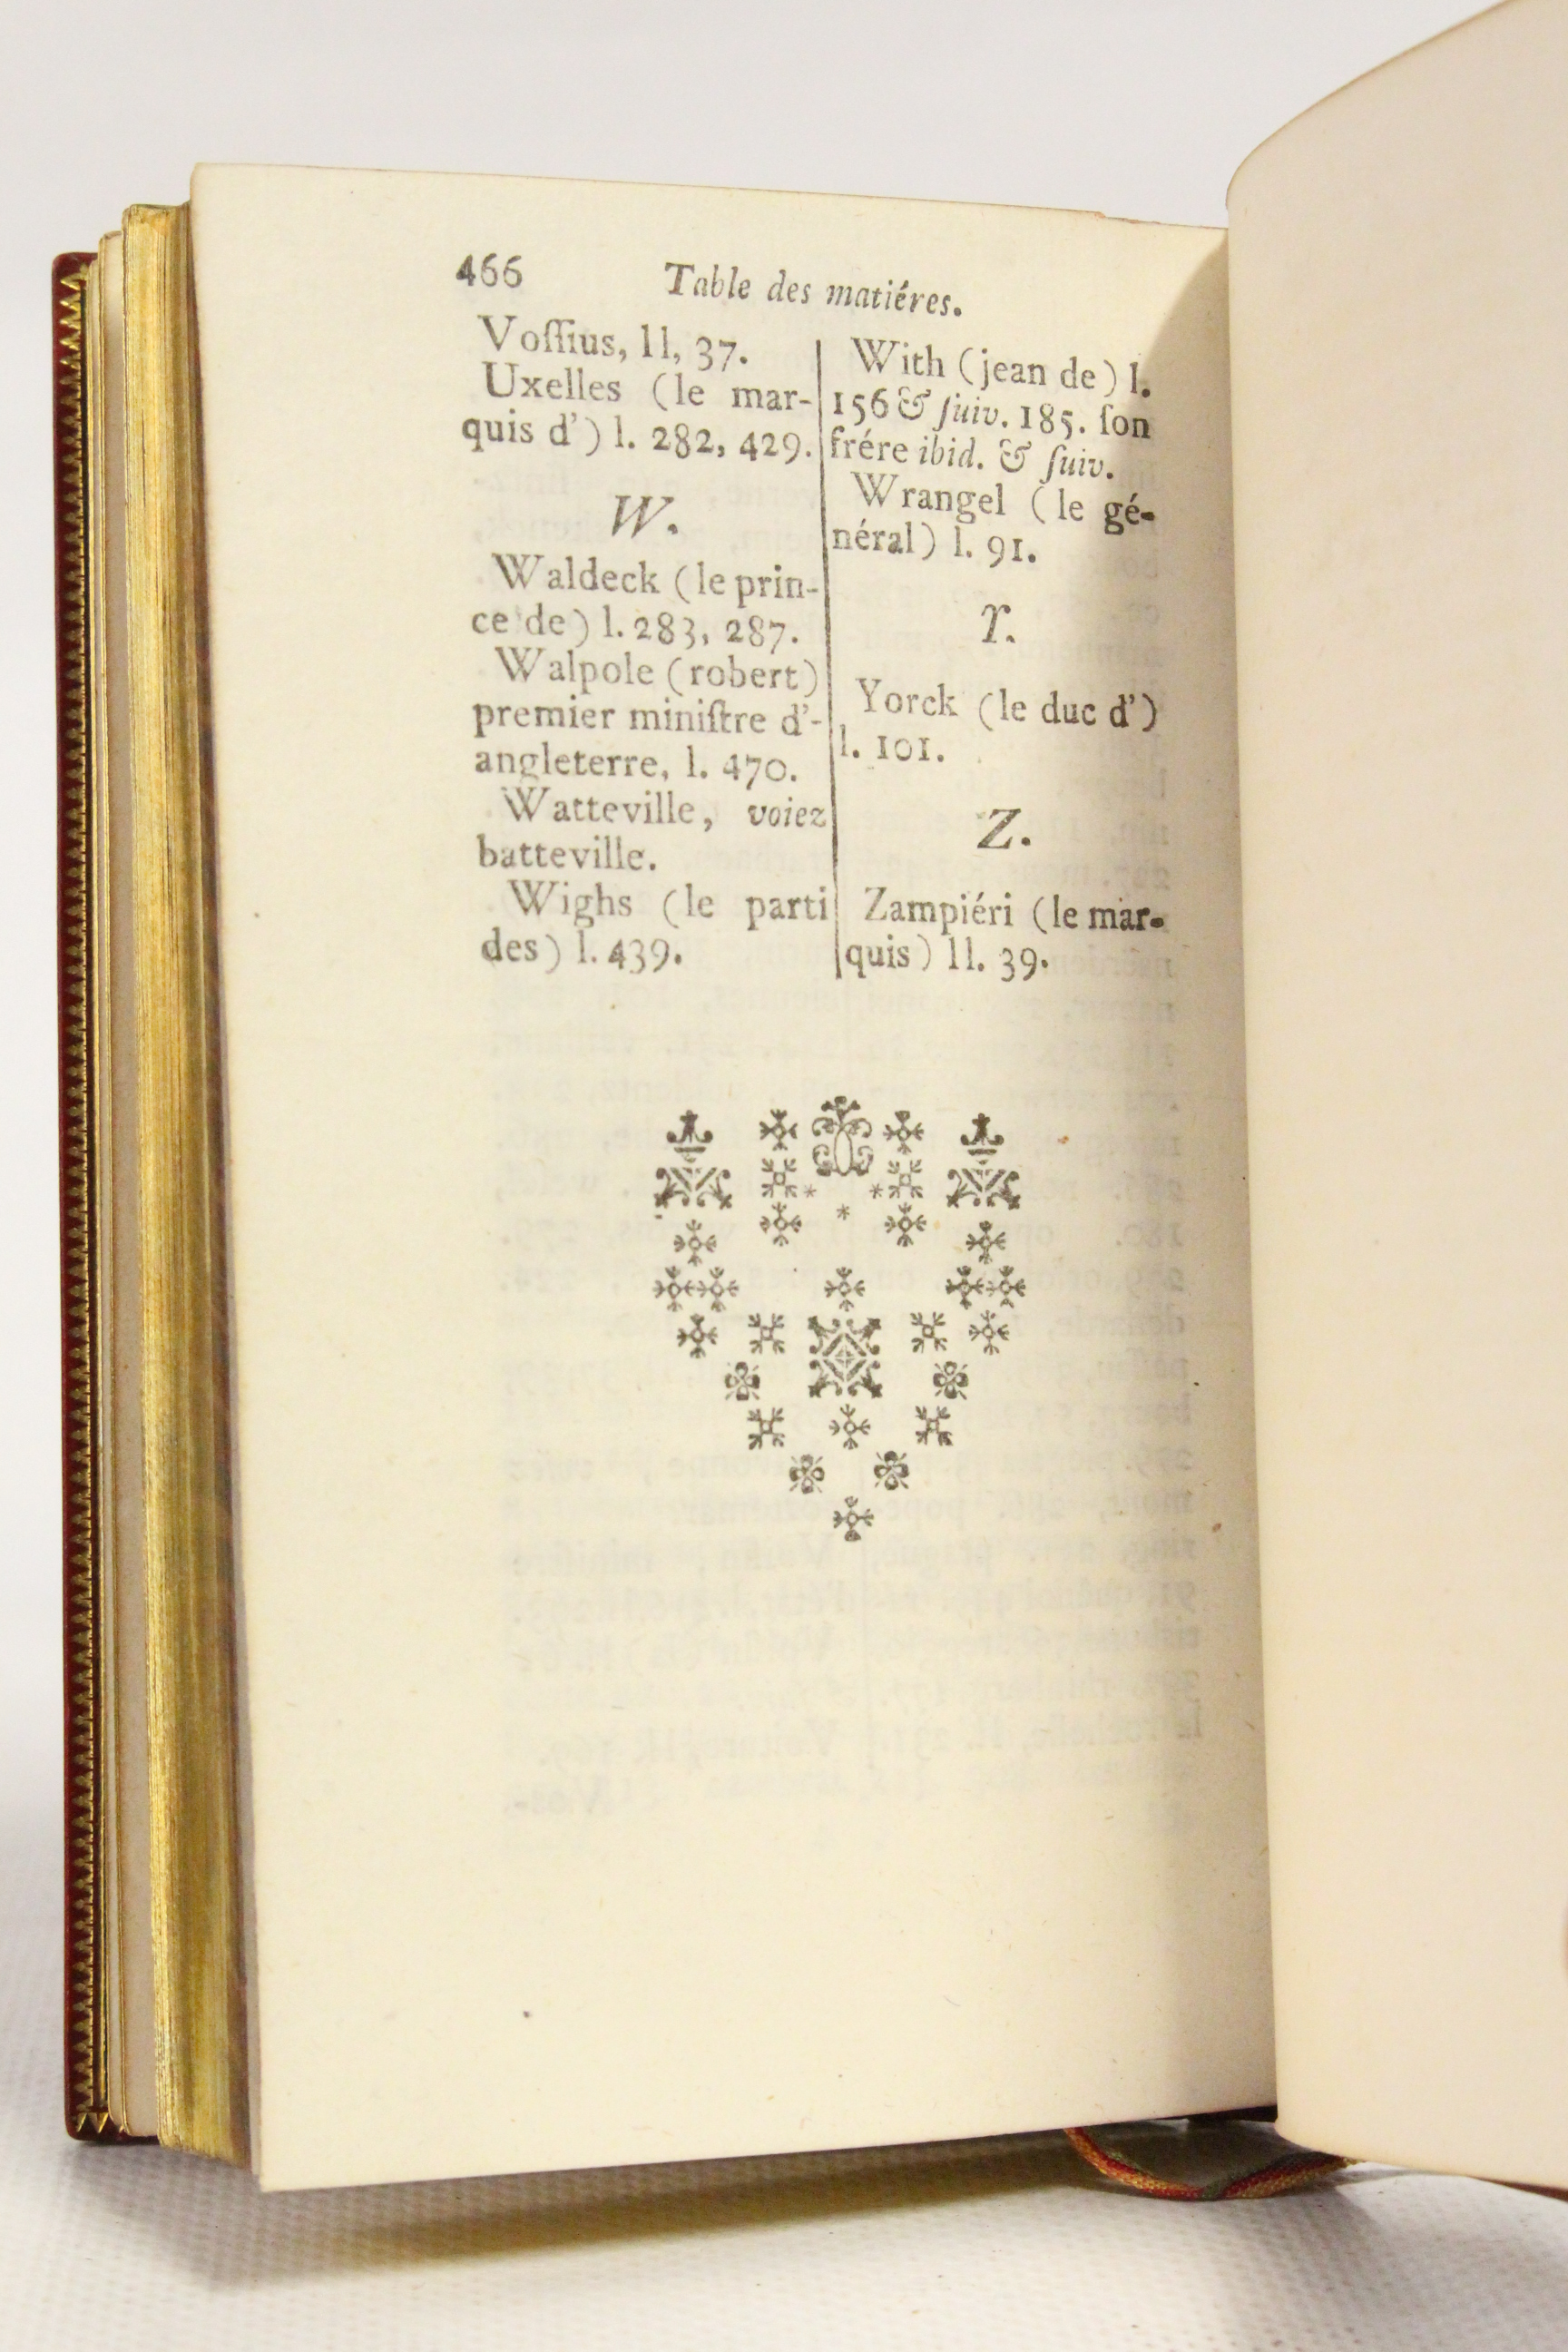 466 Table des matiéres.
Voſſius, ll, 37.
Uxelles (le mar-
quis d') l. 282, 429.
W.
Waldeck (le prin-
ce de) l. 283, 287.
Walpole (robert)
premier miniſtre d'-
angleterre, l. 470.
Watteville, voiez
batteville.
Wighs (le parti
des) l. 439.
With (jean de) l.
156 & ſuiv. 185. ſon
frére ibid. & ſuiv.
Wrangel (le gé-
néral) l. 91.
Y.
Yorck (le duc d')
l. 101.
Z.
Zampiéri (le mar-
quis) ll. 39.